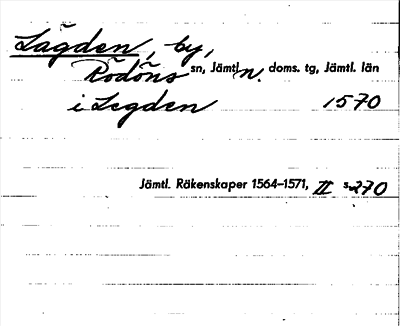 Lägden, by,
Rödöns sn, Jämtl. n. doms. tg, Jämtl. län
i Legden 1570
Jämtl. Räkenskaper 1564–1571, II s. 270